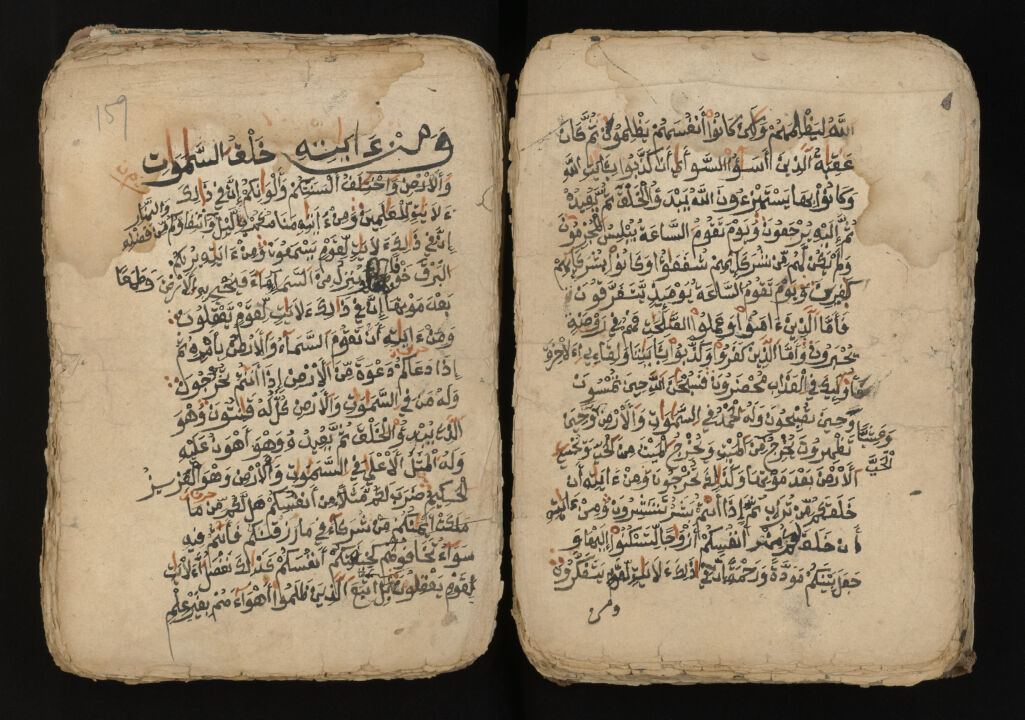 الله ليظلمهم ولكن كانوا أنفسهم يظلمون ثم كان
عقبة الذين أسـٔوا السوأى أن كذبوا بـٔايت الله
وكانوا بها يستهزءون الله يبدؤا الخلق ثم يعيده
ثم إليه ترجعون ويوم تقوم الساعة يبلس المجرمون
ولم يكن لهم من شركائهم شفعؤا وكانوا بشركائهم
كفرين ويوم تقوم الساعة يومئذ يتفرقون
فأما الذين ءامنوا وعملوا الصلحت فهم في روضة
يحبرون وأما الذين كفروا وكذبوا بـٔايتنا ولقاءى ءالاخرة
فأولئك في العذاب محضرون فسبحن الله حين تمسون
وحين تصبحون وله الحمد في السموت والأرض وعشيا وحين
تظهرون يخرج الحي من الميت ويخرج الميت من الحي ويحي
الأرض بعد موتها وكذلك تخرجون ومن ءايته أن
خلقكم من تراب ثم إذا أنتم بشر تنتشرون ومن ءايته
أن خلق لكم من أنفسكم أزوجا لتسكنوا إليها و
جعل بينكم مودة ورحمة إن في ذلك ءلايت لقوم يتفكرون
ومن
159
ومن ءايته خلق السموت
والأرض واختلف ألسنتكم وألوانكم إن في ذلك
ءلايت للعلمين ومن ءايته منامكم باليل والنهار وابتغاؤكم من فضله
إن في ذلك ءلايت لقوم يسمعون ومن ءايته يريكم
البرق خوفا وطمعا وينزل من السماء ماء فيحيي به الأرض
بعد موتها إن في ذلك ءلايت لقوم يعقلون
ومن ءايته أن تقوم السماء والأرض بأمره ثم
إذا دعاكم دعوة من الأرض إذا أنتم تخرجون
وله من في السموت والأرض كل له قنتون وهو
الذي يبدؤا الخلق ثم يعيده وهو أهون عليه
وله المثل الأعلى في السموت والأرض وهو العزيز
الحكيم ضرب لكم مثلا من أنفسكم هل لكم من ما
ملكت أيمنكم من شركاء في ما رزقنكم فأنتم فيه
سواء تخافونهم كخيفتكم أنفسكم كذلك نفصل ءلايت
لقوم يعقلون بل اتبع الذين ظلموا أهواءهم بغير علم